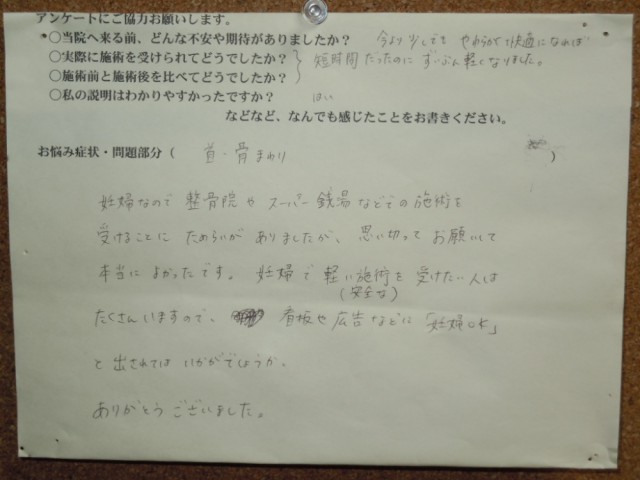 アンケートにご協力お願いします。
〇当院へ来る前、どんな不安や期待がありましたか？ 今より少しでも やわらかで快適になれば
〇実際に施術を受けられてどうでしたか？
〇施術前と施術後を比べてどうでしたか？ 短時間だったのに ずいぶん軽くなりました。
〇私の説明はわかりやすかったですか？ はい
などなど、なんでも感じたことをお書きください。
お悩み症状・問題部分（ 首・骨まわり ）
妊婦なので 整骨院や スーパー銭湯などでの施術を
受けることに ためらいが ありましたが、思い切って お願いして
本当に よかったです。妊婦で 軽い施術を 受けたい人は
(安全な)
たくさんいますので、 看板や 広告などに「妊婦OK」
と出されては いかがでしょうか。
ありがとうございました。